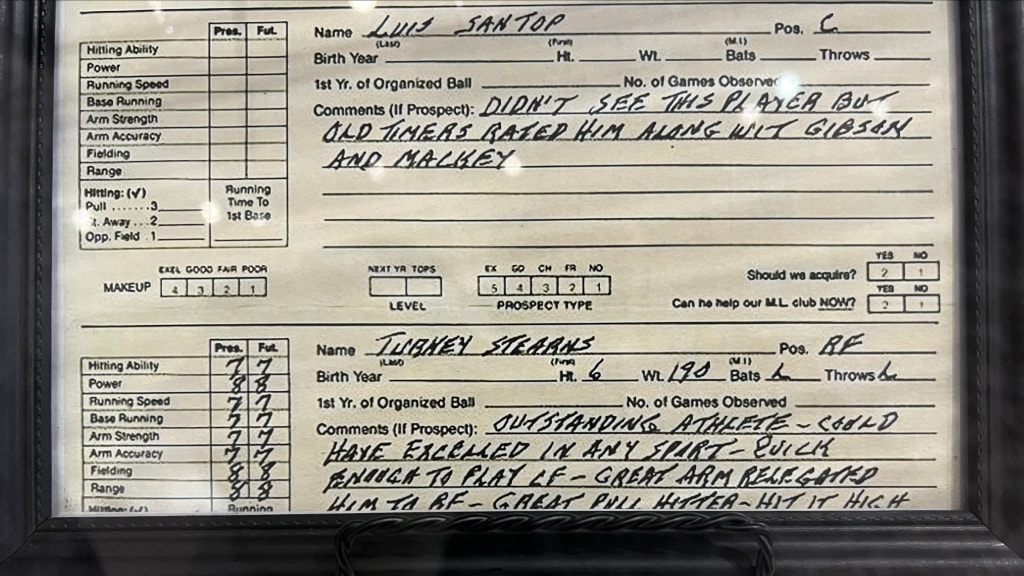 Pres. Fut. Name LUIS SANTOP Pos. C
(Last) (First) (M.I)
Hitting Ability Birth Year Ht. Wt. Bats Throws
Power
Running Speed 1st Yr. of Organized Ball No. of Games Observed
Base Running Comments (If Prospect): DIDN'T SEE THIS PLAYER BUT
Arm Strength OLD TIMERS RATED HIM ALONG WIT GIBSON
Arm Accuracy
Fielding AND MACKEY
Range
Hitting: (√) Running
Pull .......3 Time To
St. Away ...2 1st Base
Opp. Field .1
EXEL GOOD FAIR POOR NEXT YR TOPS EX GO CH FR NO YES NO
MAKEUP 4 3 2 1 5 4 3 2 1 Should we acquire? 2 1
LEVEL PROSPECT TYPE YES NO
Can he help our M.L. club NOW? 2 1
Pres. Fut. Name TURNEY STEARNS Pos. RF
(Last) (First) (M.I)
Hitting Ability 7 7 Birth Year Ht. 6 Wt. 190 Bats L Throws L
Power 8 8
Running Speed 7 7 1st Yr. of Organized Ball No. of Games Observed
Base Running 7 7 Comments (If Prospect): OUTSTANDING ATHLETE - COULD
Arm Strength 7 7 HAVE EXCELLED IN ANY SPORT - QUICK
Arm Accuracy 7 7
Fielding 8 8 ENOUGH TO PLAY CF - GREAT ARM RELEGATED
Range 8 8 HIM TO RF - GREAT PULL HITTER - HIT IT HIGH
Hitting: (√) Running